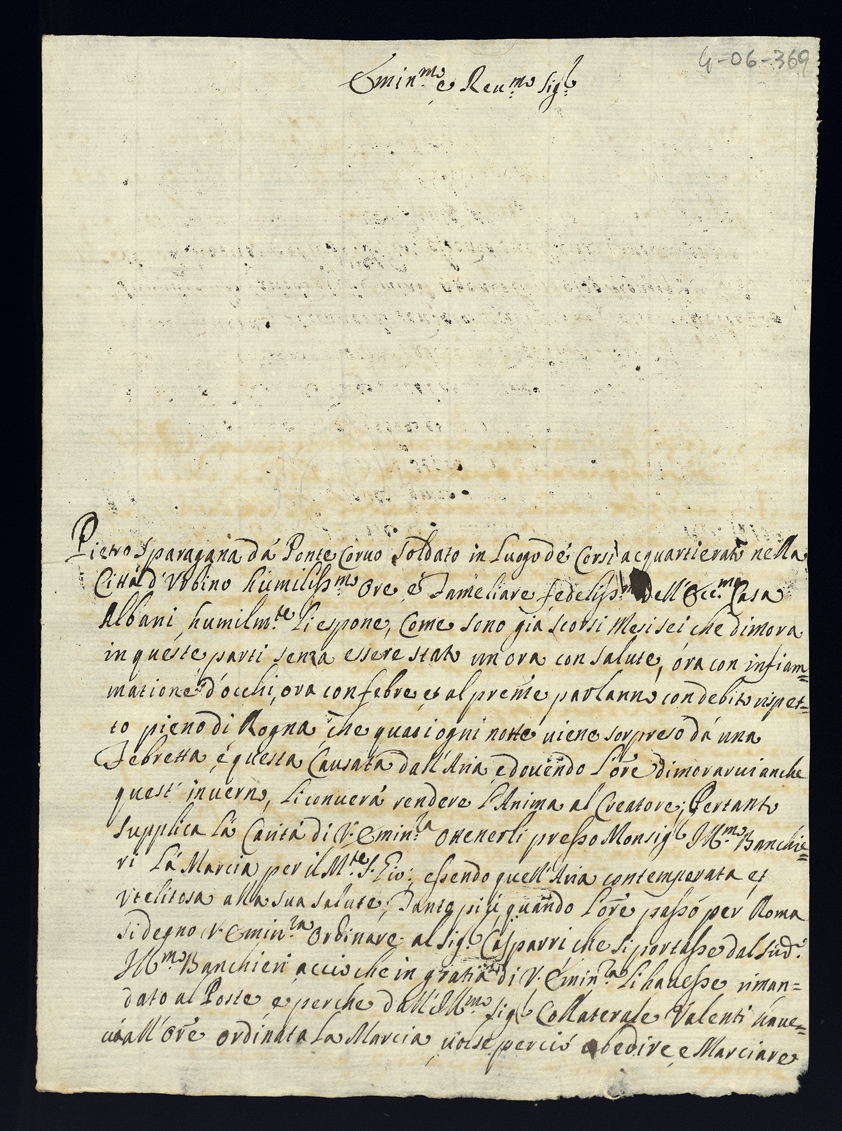 4-06-369
Emin.mo e Reu.mo Sig.
Pietro Sparagana dá Ponte Coruo Soldato in Luogo dé Corsi acquartierato nella
Cittá d'Vrbino humiliss.mo Ore, é Fameliare fedeliss.mo dell'Ecc.ma Casa
Albani humilm.te Li espone, Come sono giá scorsi Mesi sei che dimora
in queste parti senza essere stato un'ora con salute, óra con infiam=
matione d'occhi, ora con febre, et al pren̄te parlanno con debito rispet=
to pieno di Rogna che quasi ogni notte uiene sorpreso dá una
Febretta, é questa Causata dall'Aria, e douendo l'Ore dimorarui anche
quest'inuerno, li conuerá rendere l'Anima al Creatore; Pertanto
Supplica Lá Caritá di V. Emin.za Ottenerli presso Monsig. Ill.mo Banchie=
ri Lá Marcia per il M.te S. Pio, essendo quell'Aria contemperata et
Vtelitosa alla sua salute; Tanto piú quando l'Ore passó per Roma
si degnó V. Emin.za Ordinare al Sig. Gasparri che si portasse dal sud.
Ill.mo Banchieri, accio che in gratia di V. Emin.za li hauesse riman=
dato al Poste, e perche dall'Ill.mo Sig. Collaterale Valenti haue=
ua all'Ore ordinata La Marcia, uolse perció obedire, e Marciare